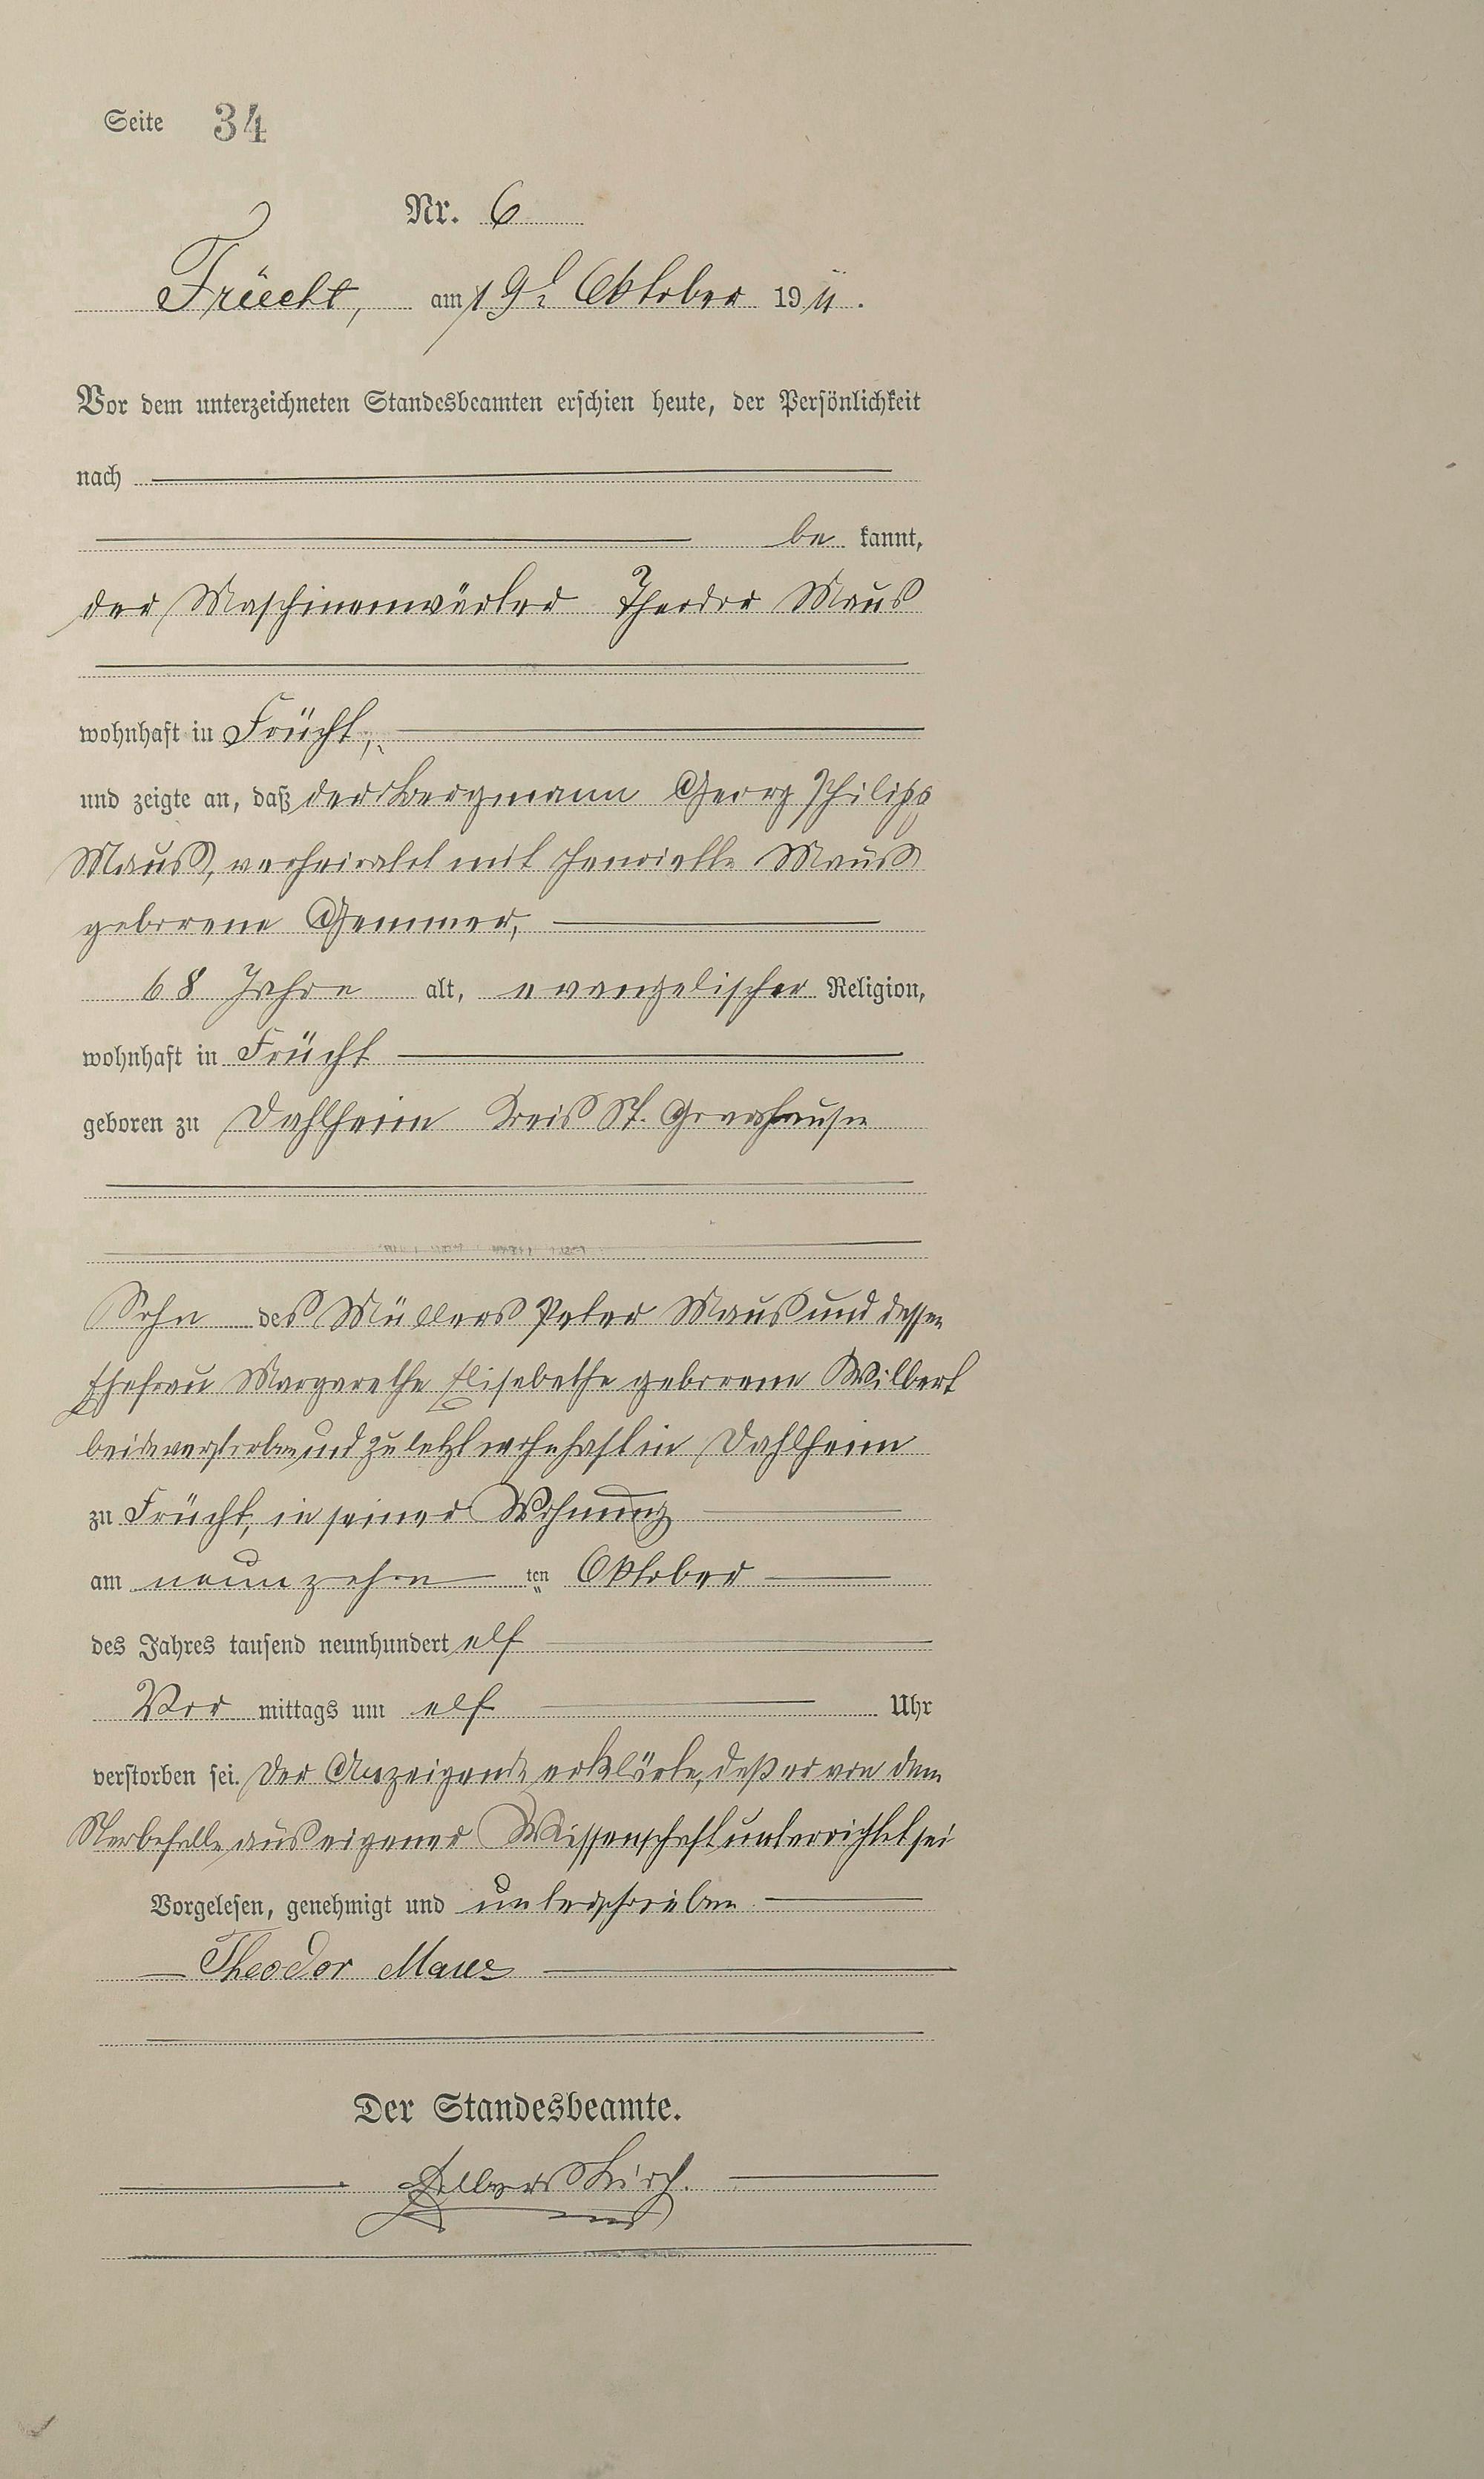 Seite 34
Nr. 6
Frücht, am 19t Oktober 1911.
Vor dem unterzeichneten Standesbeamten erschien heute, der Persönlichkeit
nach
be kannt,
der Maschinenwärter Theodor Maus
wohnhaft in Frücht,
und zeigte an, daß der Bergmann Georg Philipp
Maus, verheiratet mit Henriette Maus
geborene Gemmer,
68 Jahre alt, evangelischer Religion,
wohnhaft in Frücht
geboren zu Dahlheim Kreis St. Goarshausen
Sohn des Müllers Peter Maus und dessen
Ehefrau Margarethe Elisabethe geborene Wilbert
beide verstorben und zuletzt wohnhaft in Dahlheim
zu Frücht, in seiner Wohnung
am neunzehn ten Oktober
des Jahres tausend neunhundert elf
Vor mittags um elf Uhr
verstorben sei. Der Anzeigende erklärte, daß er von dem
Sterbefalle aus eigener Wissenschaft unterrichtet sei
Vorgelesen, genehmigt und unterschrieben
Theodor Maus
Der Standesbeamte.